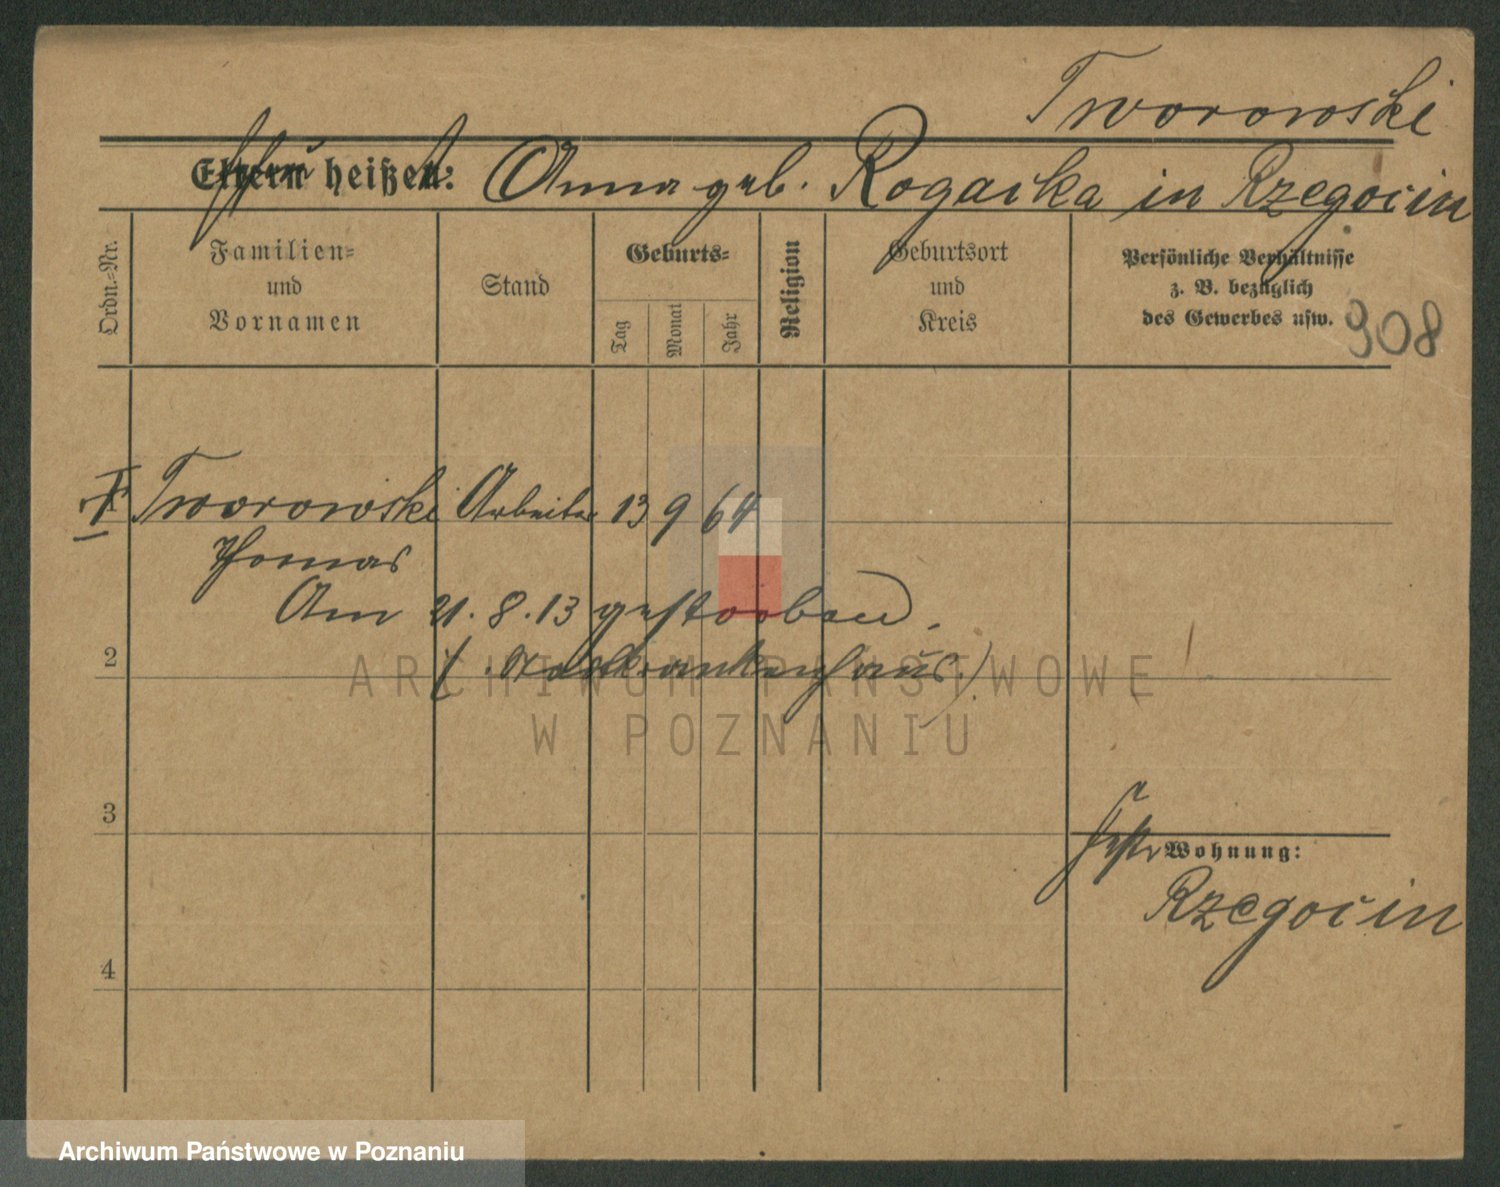 Tworowski
Eltern heißen: Anna geb. Rogacka in Rzegocin
Ordn.-Nr.
Familien= und Vornamen
Stand
Geburts=
Tag
Monat
Jahr
Religion
Geburtsort und Kreis
Persönliche Verhältnisse
z. B. bezüglich
des Gewerbes usw.
908
Tworowski Arbeiter 13 9 64
Thomas
Am 21. 8. 13 gestorben.
2
(Stadtkrankenhaus.)
ARCHIWUM PAŃSTWOWE
W POZNANIU
3
Wohnung:
Rzegocin
4
Archiwum Państwowe w Poznaniu